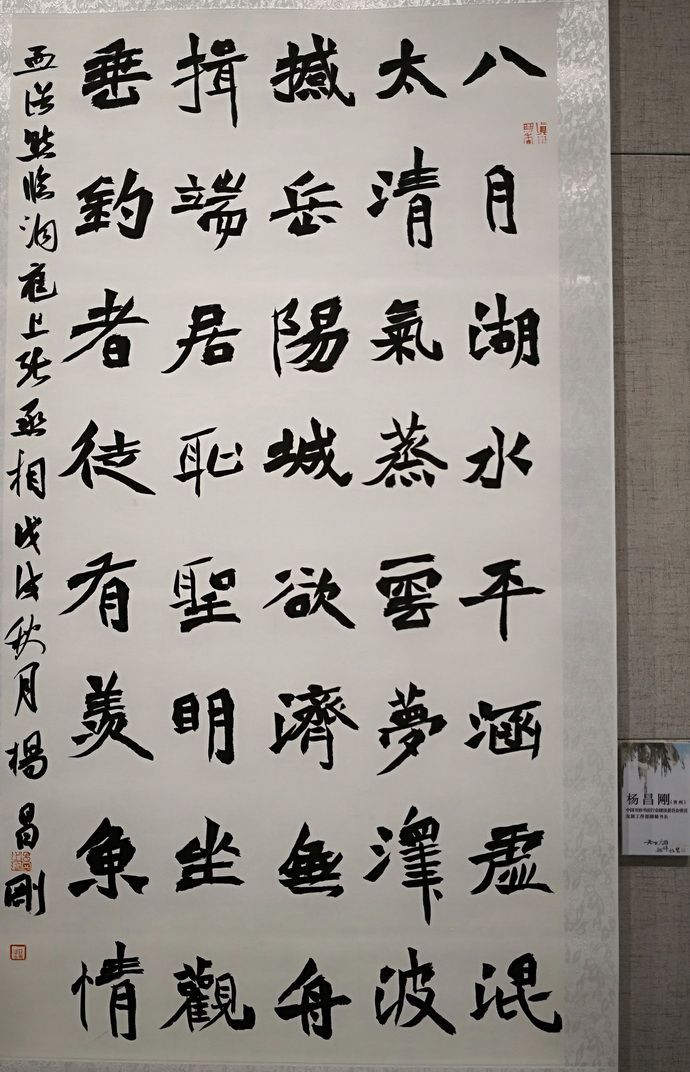 八月湖水平涵虛混
太清氣蒸雲夢澤波
撼岳陽城欲濟無舟
揖端居恥聖明坐觀
垂釣者徒有羨魚情
孟浩然临洞庭上张丞相戊戌秋月楊昌剛
杨昌刚(贵州)